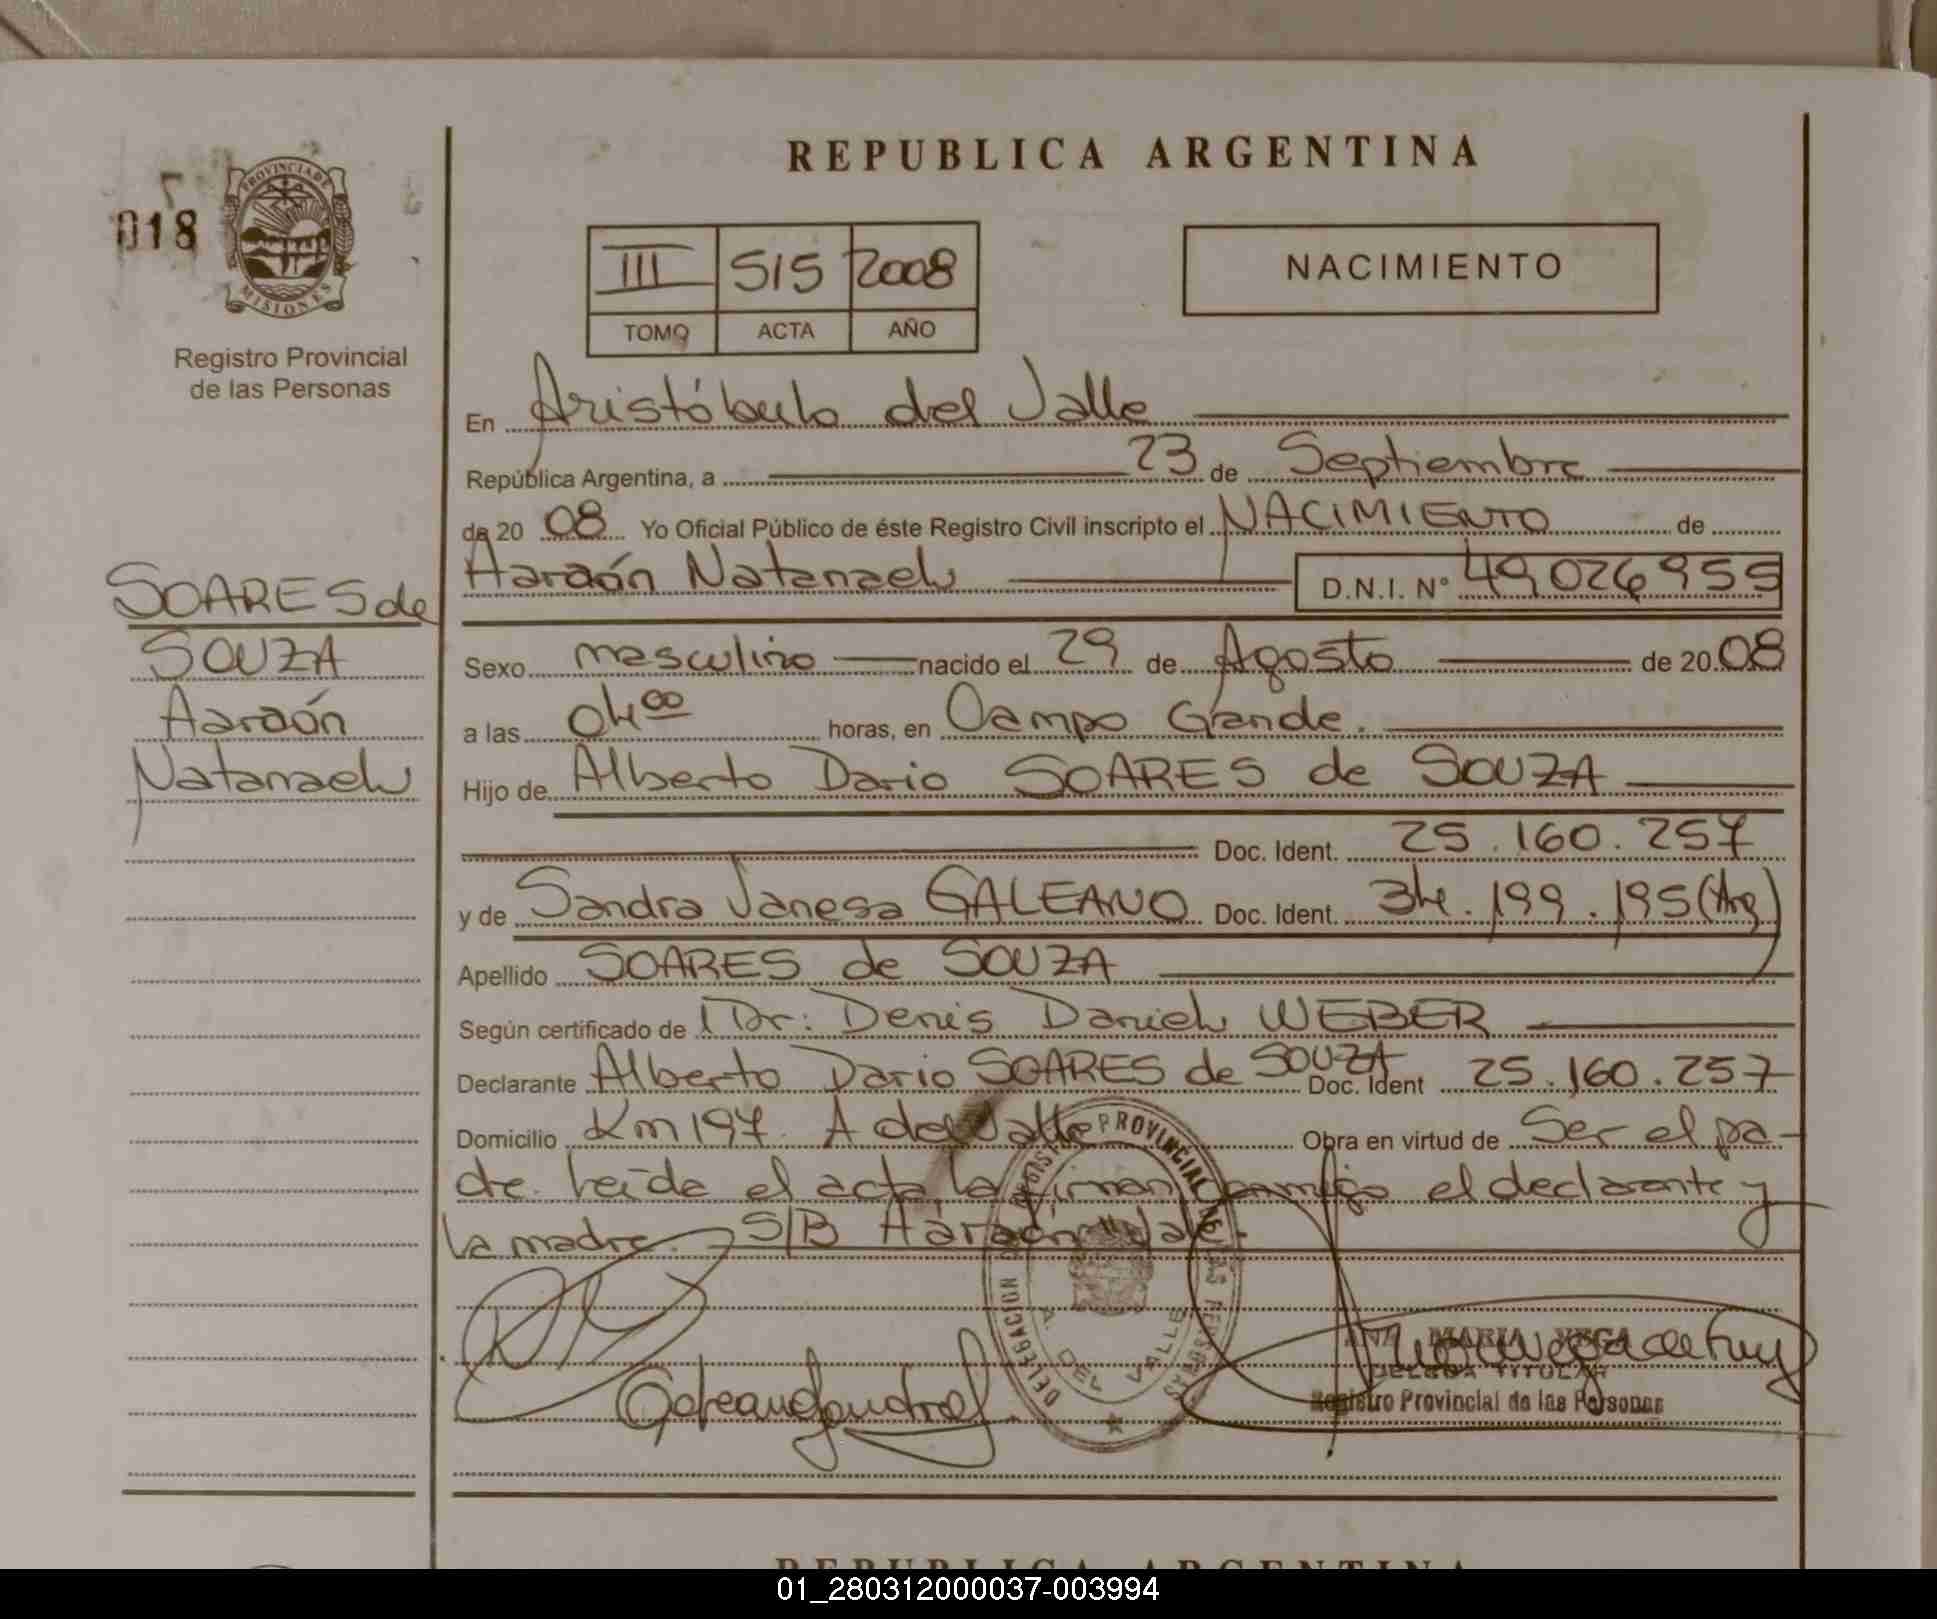 REPUBLICA ARGENTINA
018
PROVINCIA DE MISIONES
Registro Provincial
de las Personas
III 515 2008
TOMO ACTA AÑO
NACIMIENTO
En Aristóbulo del Valle
República Argentina, a 23 de Septiembre
de 20 08 Yo Oficial Público de éste Registro Civil inscripto el NACIMIENTO de
Aaraón Natanael D.N.I. N° 49026955
SOARES de
SOUZA
Aaraón
Natanael
Sexo masculino nacido el 29 de Agosto de 20 08
a las 04 00 horas, en Campo Grande.
Hijo de Alberto Dario SOARES de SOUZA
Doc. Ident. 25.160.257
y de Sandra Vanesa GALEANO Doc. Ident. 34.199.195 (Arg)
Apellido SOARES de SOUZA
Según certificado de Dr: Denis Daniel WEBER
Declarante Alberto Dario SOARES de SOUZA Doc. Ident 25.160.257
Domicilio Km 197. A del Valle Obra en virtud de Ser el pa-
dre. Leída el acta la firman conmigo el declarante y
la madre. S/B Aaraón Vale.
DELEGACION REGISTRO PROVINCIAL DE LAS PERSONAS
A. DEL VALLE
Galeano Sandra
ANA MARIA VEGA
DELEGA TITULAR
Registro Provincial de las Personas
REPUBLICA ARGENTINA
01_280312000037-003994